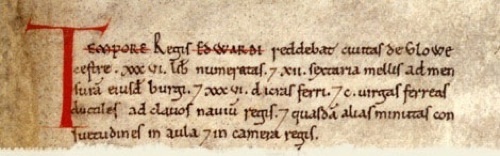 TEMPORE Regis EDWARDI reddebat ciuitas de Glowe
cestre . xxxvi . lib̃ numeratas . ⁊ xii . sextaria mellis ad men
surā eiusđ burgi . ⁊ xxxvi . dicras ferri . ⁊ c . uirgas ferreas
ductiles ad clauos nauiū regis . ⁊ quasdā alias minutas con
suetudines in aula ⁊ in camera regis .